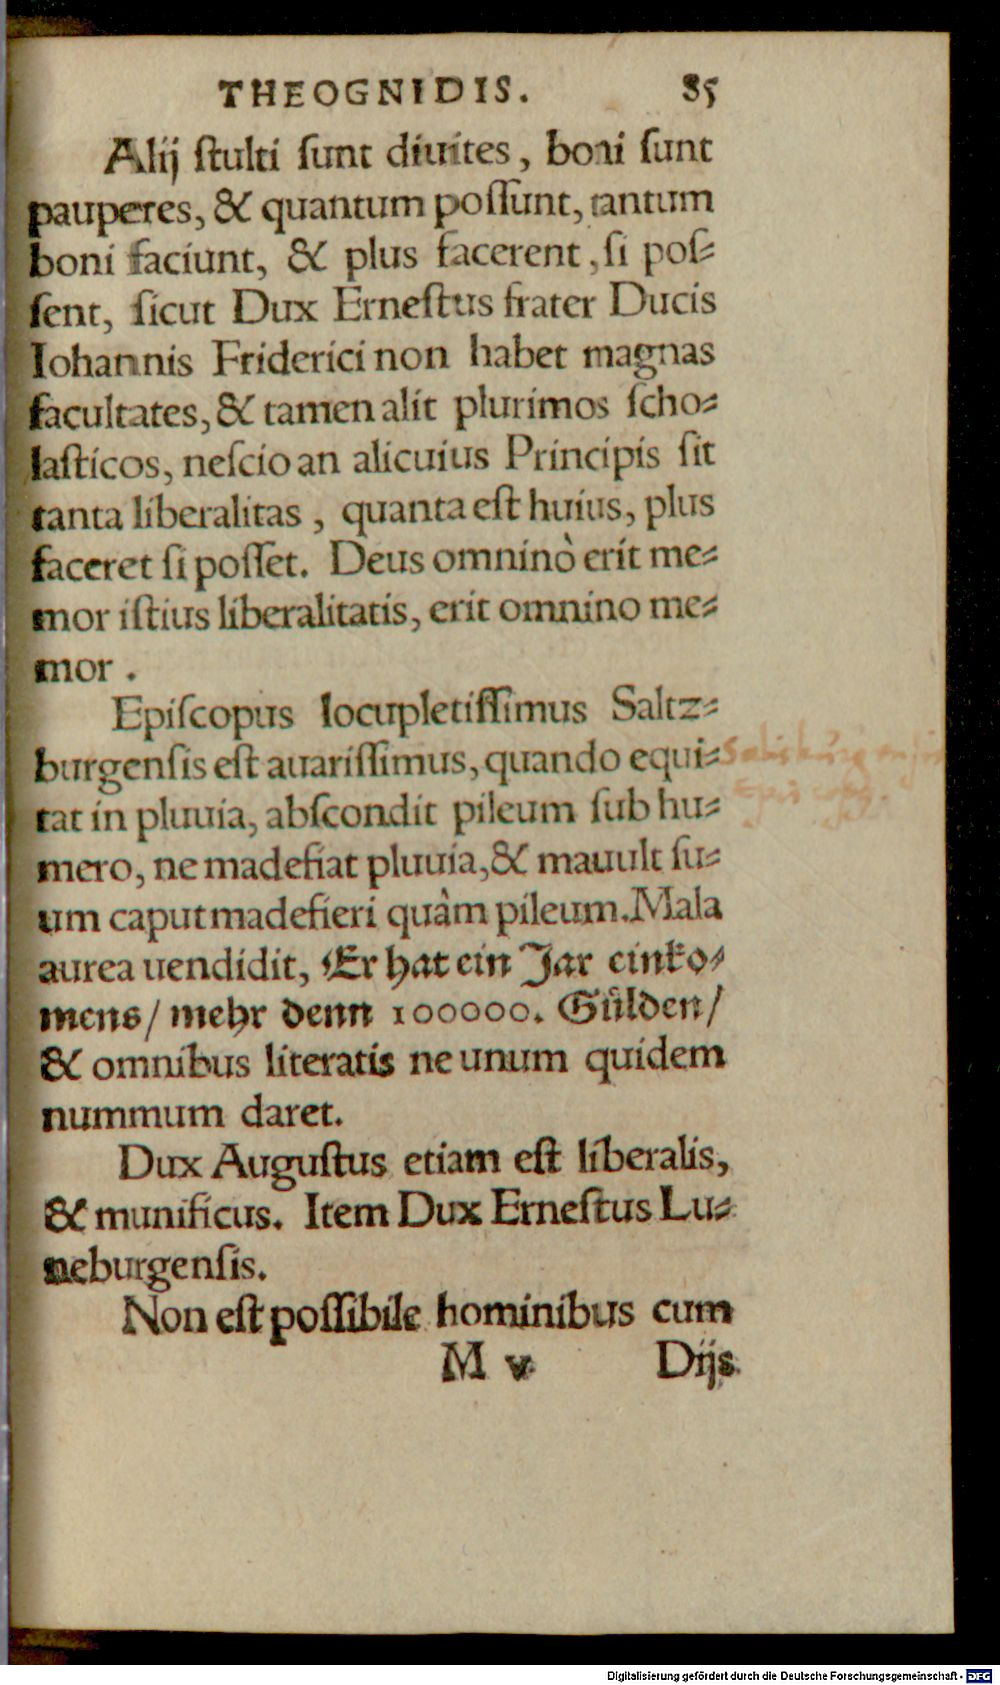 THEOGNIDIS. 85
Alij ſtulti ſunt diuites, boni ſunt
pauperes, & quantum poſſunt, tantum
boni faciunt, & plus facerent, ſi poſ⸗
ſent, ſicut Dux Erneſtus frater Ducis
Iohannis Friderici non habet magnas
facultates, & tamen alit plurimos ſcho⸗
laſticos, neſcio an alicuius Principis ſit
tanta liberalitas, quanta eſt huius, plus
faceret ſi poſſet. Deus omninò erit me⸗
mor iſtius liberalitatis, erit omnino me⸗
mor.
Epiſcopus locupletiſſimus Saltz⸗
burgenſis eſt auariſſimus, quando equi⸗
tat in pluuia, abſcondit pileum ſub hu⸗
mero, ne madefiat pluuia, & mauult ſu⸗
um caput madefieri quàm pileum. Mala
aurea uendidit, Er hat ein Jar einko⸗
mens/ mehr denn 100000. Gülden/
& omnibus literatis ne unum quidem
nummum daret.
Dux Auguſtus etiam eſt liberalis,
& munificus. Item Dux Erneſtus Lu⸗
neburgenſis.
Non eſt poſſibile hominibus cum
M v Dijs
Digitalisierung gefördert durch die Deutsche Forschungsgemeinschaft - DFG